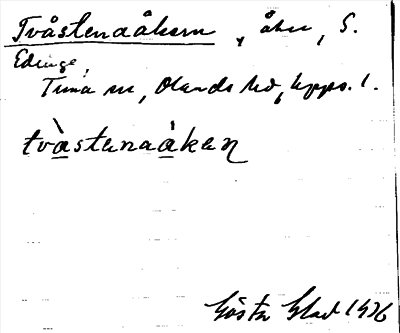 Tvåstenaåkern, åker, S.
Edinge,
Tuna sn, Olands hd, Upps. l.
tvàstenaàkaɳ
Gösta Glad 1936